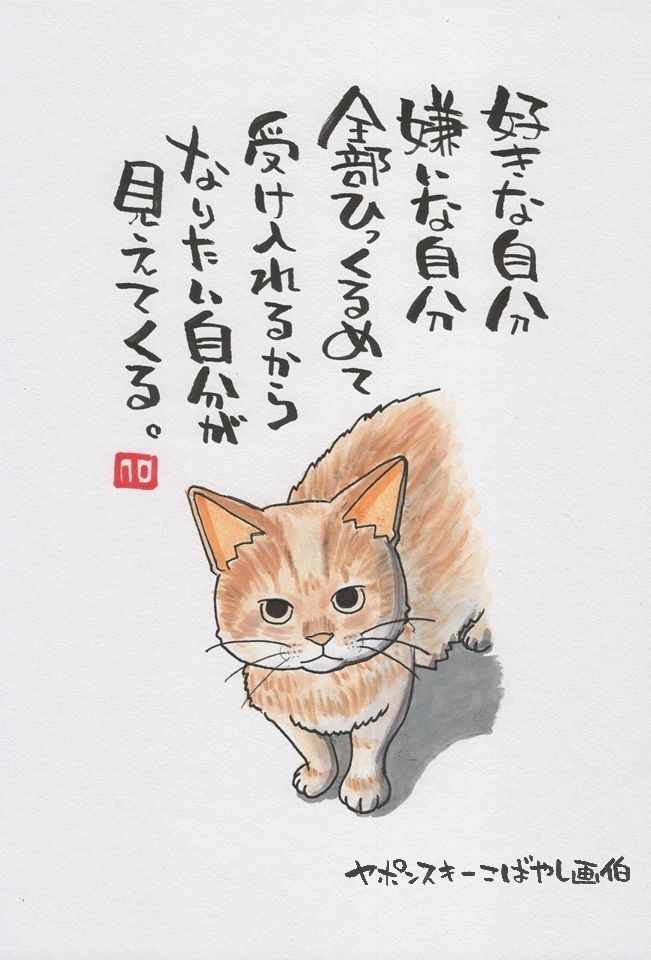 好きな自分
嫌いな自分
全部ひっくるめて
受け入れるから
なりたい自分が
見えてくる。
ヤポンスキーこばやし画伯